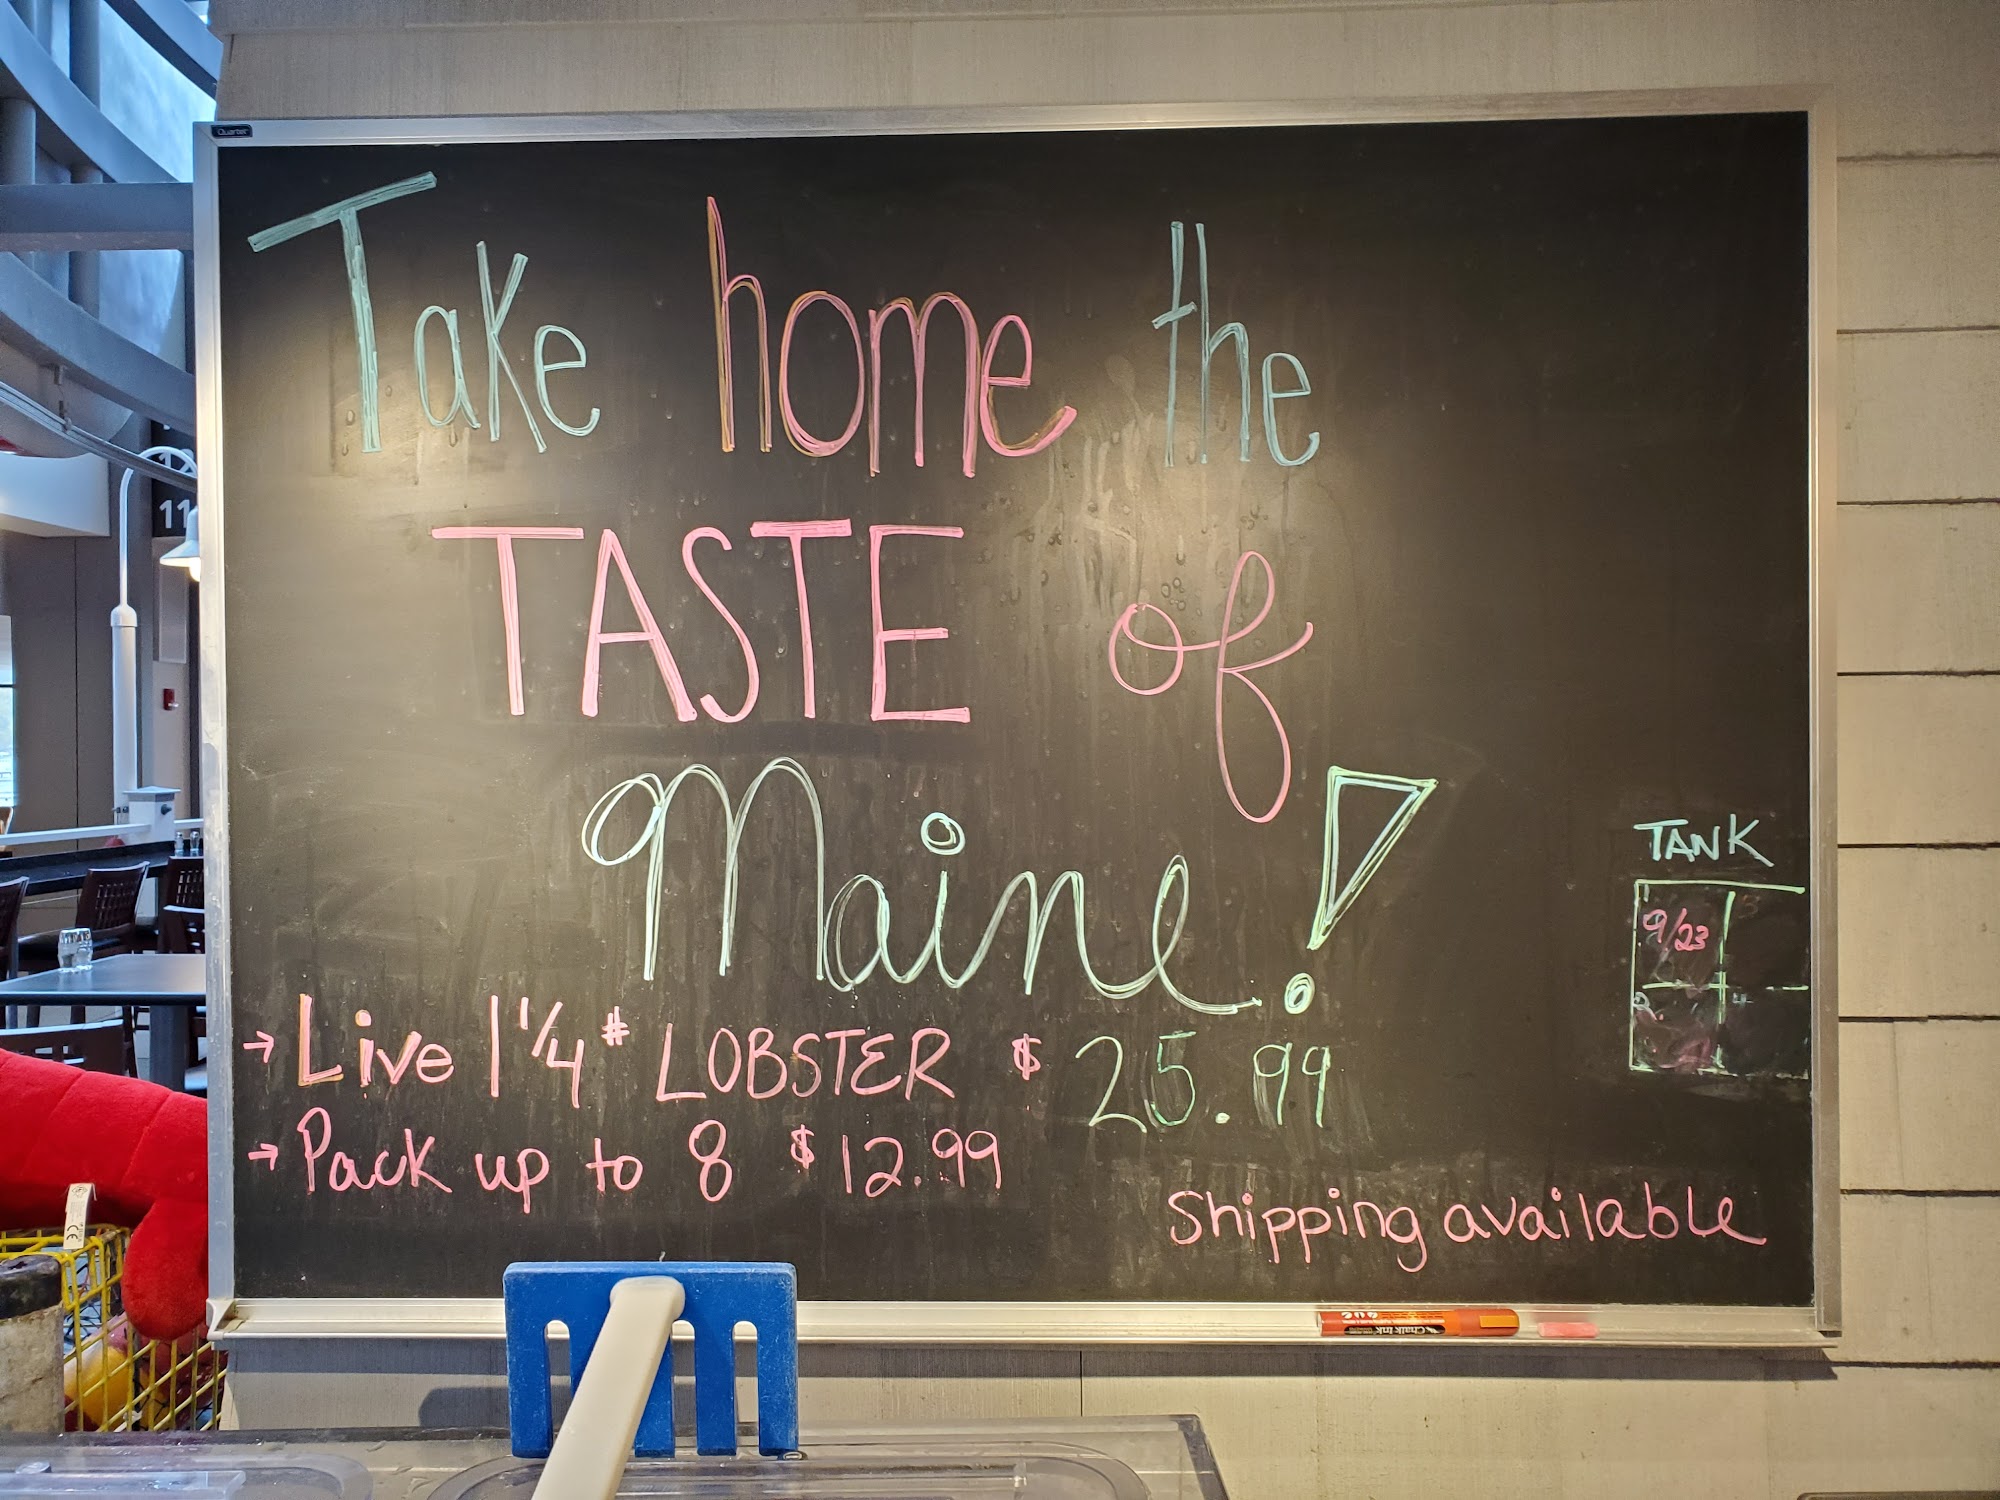 Quartet
Take home the
TASTE of
Maine!
→ Live 1 1/4 # LOBSTER $ 25.99
→ Pack up to 8 $12.99
Shipping available
TANK
1
9/23
3
2
4
11
12
Chalk Ink
CE